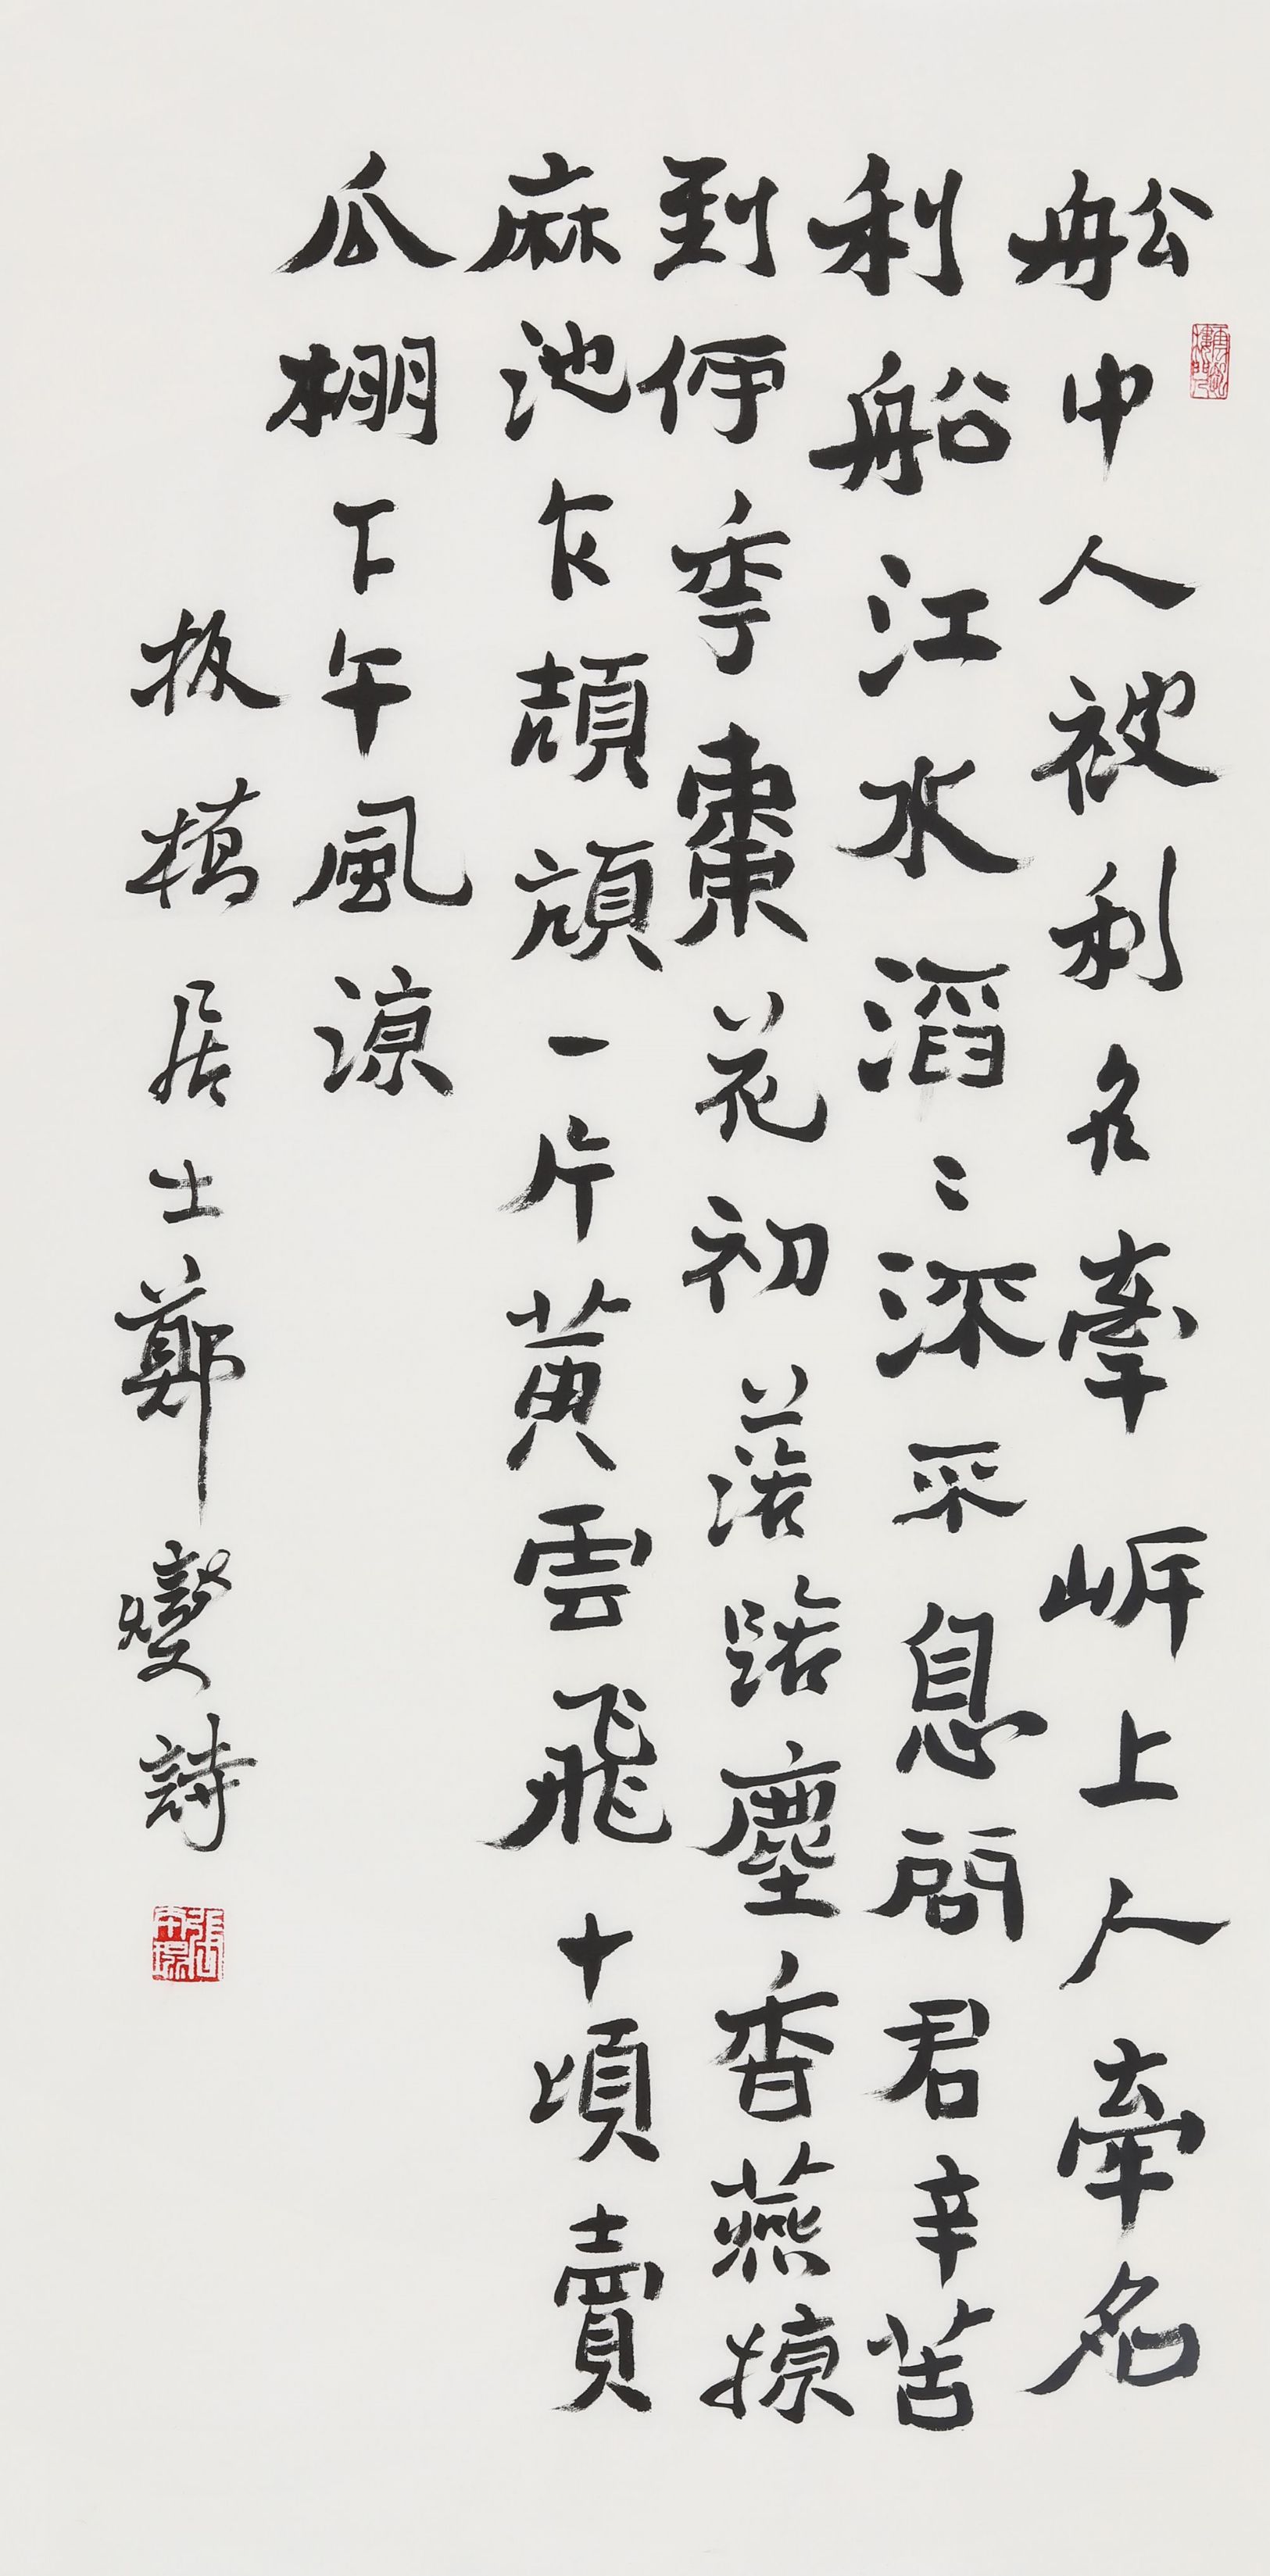 船中人被利名牽岸上人牽名
利船江水滔〻流不息問君辛苦
到何年棗花初落路塵香燕掠
麻池乍頡頏一片黃雲飛十頃賣
瓜棚下午風涼
板橋居士鄭燮詩